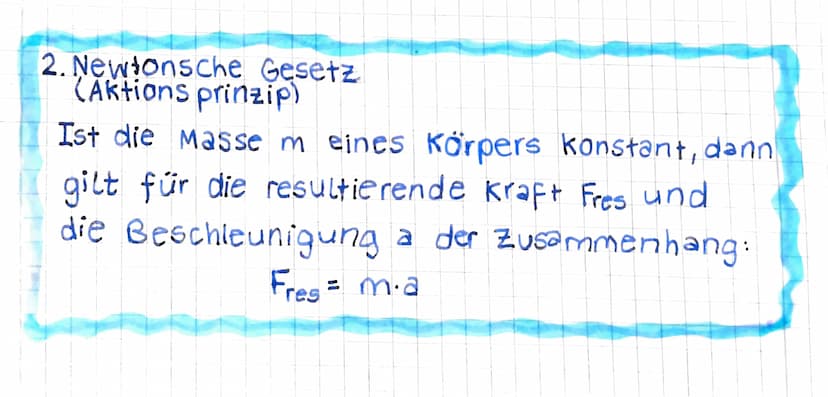 2. Newtonsche Gesetz
(Aktionsprinzip)
Ist die Masse m eines Körpers konstant, dann
gilt für die resultierende Kraft Fres und
die Beschleunigung a der Zusammenhang:
Fres = m·a